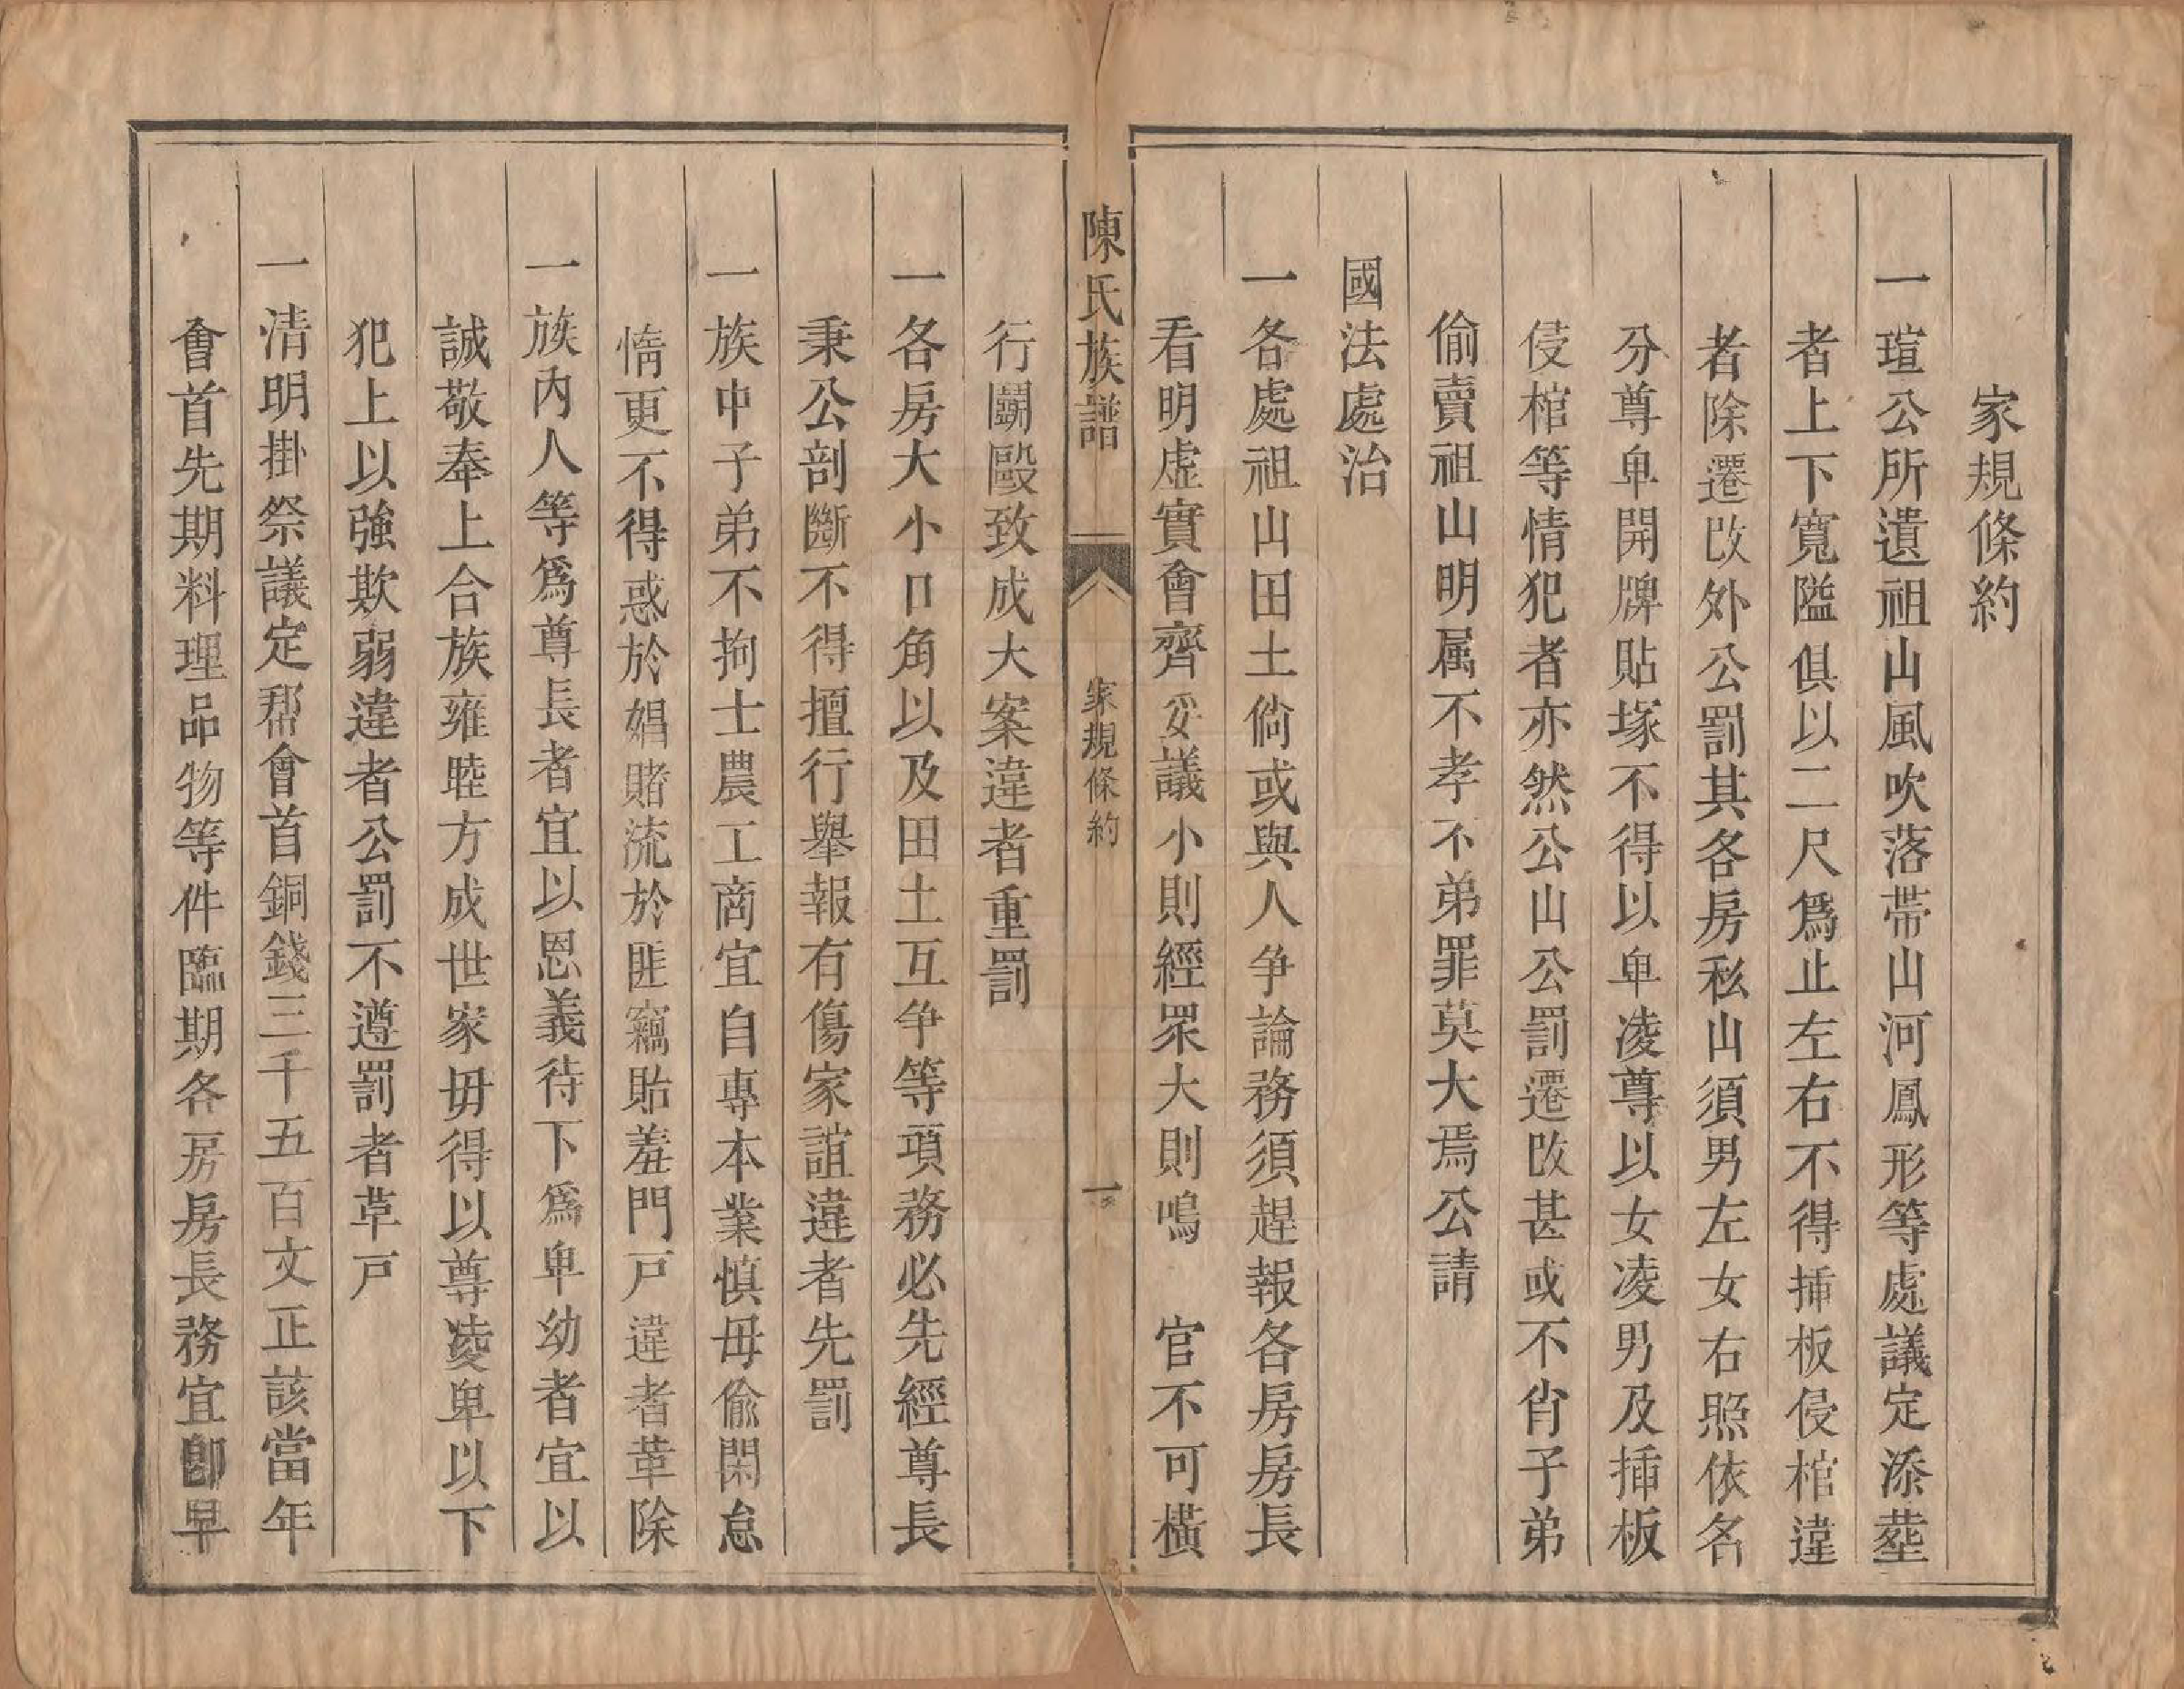 家規條約
一瑄公所遺祖山風吹落帶山河鳳形等處議定添塟
者上下寬隘俱以二尺爲止左右不得揷板侵棺違
者除遷改外公罰其各房私山須男左女右照依名
分尊卑開牌貼塚不得以卑凌尊以女凌男及揷板
侵棺等情犯者亦然公山公罰遷改甚或不肖子弟
偷賣祖山明属不孝不弟罪莫大焉公請
國法處治
一各處祖山田土倘或與人争論務須趕報各房房長
看明虛實會齊妥議小則經眾大則鳴　官不可橫
陳氏族譜
家規條約
一
行鬭毆致成大案違者重罰
一各房大小口角以及田土互争等項務必先經尊長
秉公剖斷不得擅行舉報有傷家誼違者先罰
一族中子弟不拘士農工商宜自專本業慎毋偷閑怠
惰更不得惑於娼賭流於匪竊貽羞門戸違者革除
一族內人等爲尊長者宜以恩義待下爲卑幼者宜以
誠敬奉上合族雍睦方成世家毋得以尊凌卑以下
犯上以強欺弱違者公罰不遵罰者草戸
一清明掛祭議定帮會首銅錢三千五百文正該當年
會首先期料理品物等件臨期各房房長務宜卽早